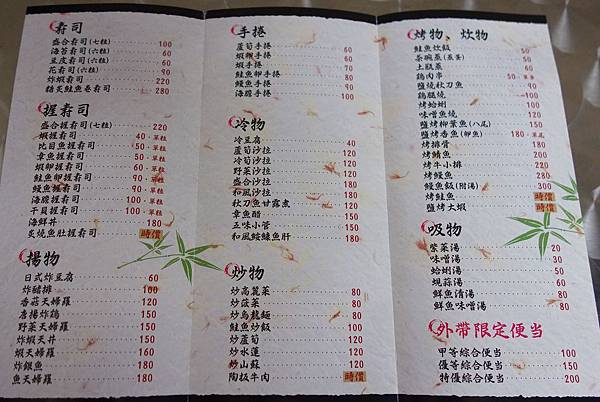 寿司
盛合寿司(七粒) 100
海苔寿司(六粒) 60
豆皮寿司(六粒) 60
花寿司(六粒) 90
炸蝦寿司 220
鵝炙鮭魚卷寿司 280
握寿司
盛合握寿司(七粒) 220
蝦握寿司 40·單粒
比目魚握寿司 50·單粒
章魚握寿司 50·單粒
蝦卵握寿司 60·單粒
鮭魚卵握寿司 90·單粒
鰻魚握寿司 90·單粒
海膽握寿司 100·單粒
干貝握寿司 100·單粒
海鮮丼 180
炙燒魚肚握寿司 時價
揚物
日式炸豆腐 60
炸豬排 100
香菇天婦羅 120
唐揚炸鶏 150
野菜天婦羅 150
炸蝦天丼 150
蝦天婦羅 160
炸銀魚 180
魚天婦羅 180
手捲
蘆筍手捲 60
蝦卵手捲 60
蝦手捲 70
鮭魚卵手捲 90
鰻魚手捲 90
海膽手捲 100
冷物
冷豆腐 50
蘆筍沙拉 120
冷筍沙拉 120
野菜沙拉 120
盛合沙拉 180
和風沙拉 180
秋刀魚甘露煮 120
章魚醋 150
五味小管 150
和風鮟鱇魚肝 180
炒物
炒高麗菜 80
炒菠菜 80
炒烏龍麵 80
鮭魚炒飯 100
炒蘆筍 120
炒水蓮 120
炒山蘇 120
陶板牛肉 時價
烤物、炊物
鮭魚炊飯 50
茶碗蒸(蒸蛋) 50
土瓶蒸 60
鶏肉串 50·單串
鹽燒秋刀魚 90
鶏腿燒 100
烤蛤蜊 100
味噌魚燒 150
鹽烤柳葉魚(八尾) 150
鹽烤香魚(卵魚) 180·單尾
烤排骨 180
烤鯖魚 200
烤牛小排 220
烤鰻魚 280
鰻魚飯(附湯) 300
烤鮭魚 時價
鹽烤大蝦 時價
吸物
紫菜湯 20
味噌湯 30
蛤蜊湯 50
蜆蒜湯 60
鮮魚清湯 80
鮮魚味噌湯 80
外帶限定便当
甲等綜合便当 100
優等綜合便当 150
特優綜合便当 200